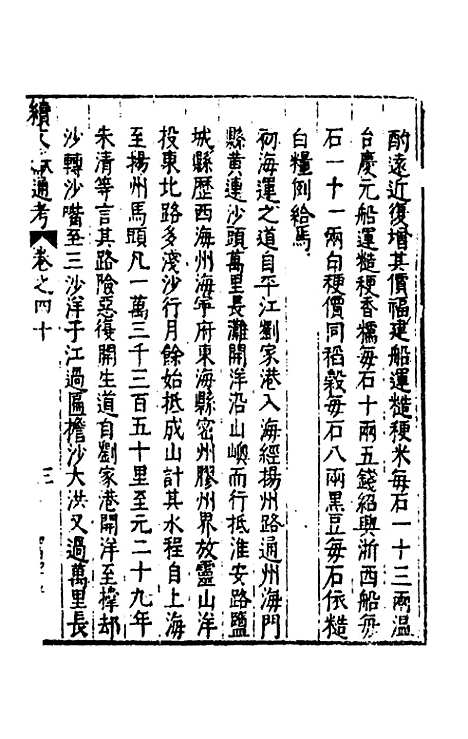 酌遠近復增其價福建船運糙粳米每石一十三兩温
台慶元船運糙粳香糯每石十兩五錢紹興浙西船每
石一十一兩白粳價同稻穀每石八兩黑豆每石依糙
白糧例給焉
初海運之道自平江劉家港入海經揚州路通州海門
縣黄連沙頭萬里長灘開洋沿山嶼而行抵淮安路鹽
城縣歷西海州海寧府東海縣密州膠州界放靈山洋
投東北路多淺沙行月餘始抵成山計其水程自上海
至揚州馬頭凡一萬三千三百五十里至元二十九年
朱清等言其路險惡復開生道自劉家港開洋至撐却
沙轉沙嘴至三沙洋子江過匾檐沙大洪又過萬里長
續文獻通考 卷之四十
三